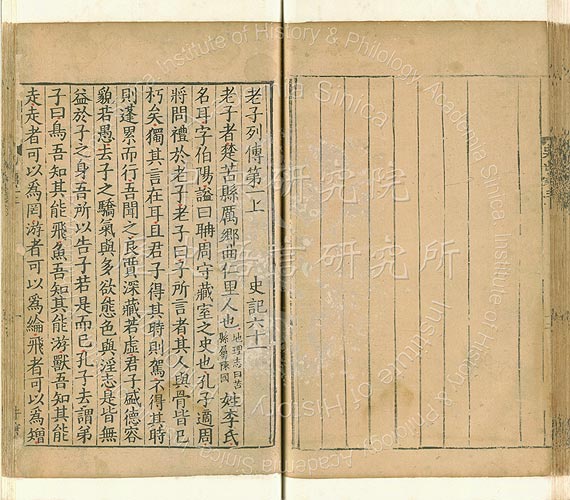 老子列傳第一上　史記六十一
老子者楚苦縣厲鄉曲仁里人也地理志曰苦縣屬陳國姓李氏
名耳字伯陽謚曰聃周守藏室之史也孔子適周
將問禮於老子老子曰子所言者其人與骨皆已
朽矣獨其言在耳且君子得其時則駕不得其時
則蓬累而行吾聞之良賈深藏若虛君子盛德容
貌若愚去子之驕氣與多欲態色與淫志是皆無
益於子之身吾所以告子若是而已孔子去謂弟
子曰鳥吾知其能飛魚吾知其能游獸吾知其能
走走者可以爲罔游者可以爲綸飛者可以爲矰
中央研究院
歷史語言研究所
Institute of History & Philology Academia Sinica